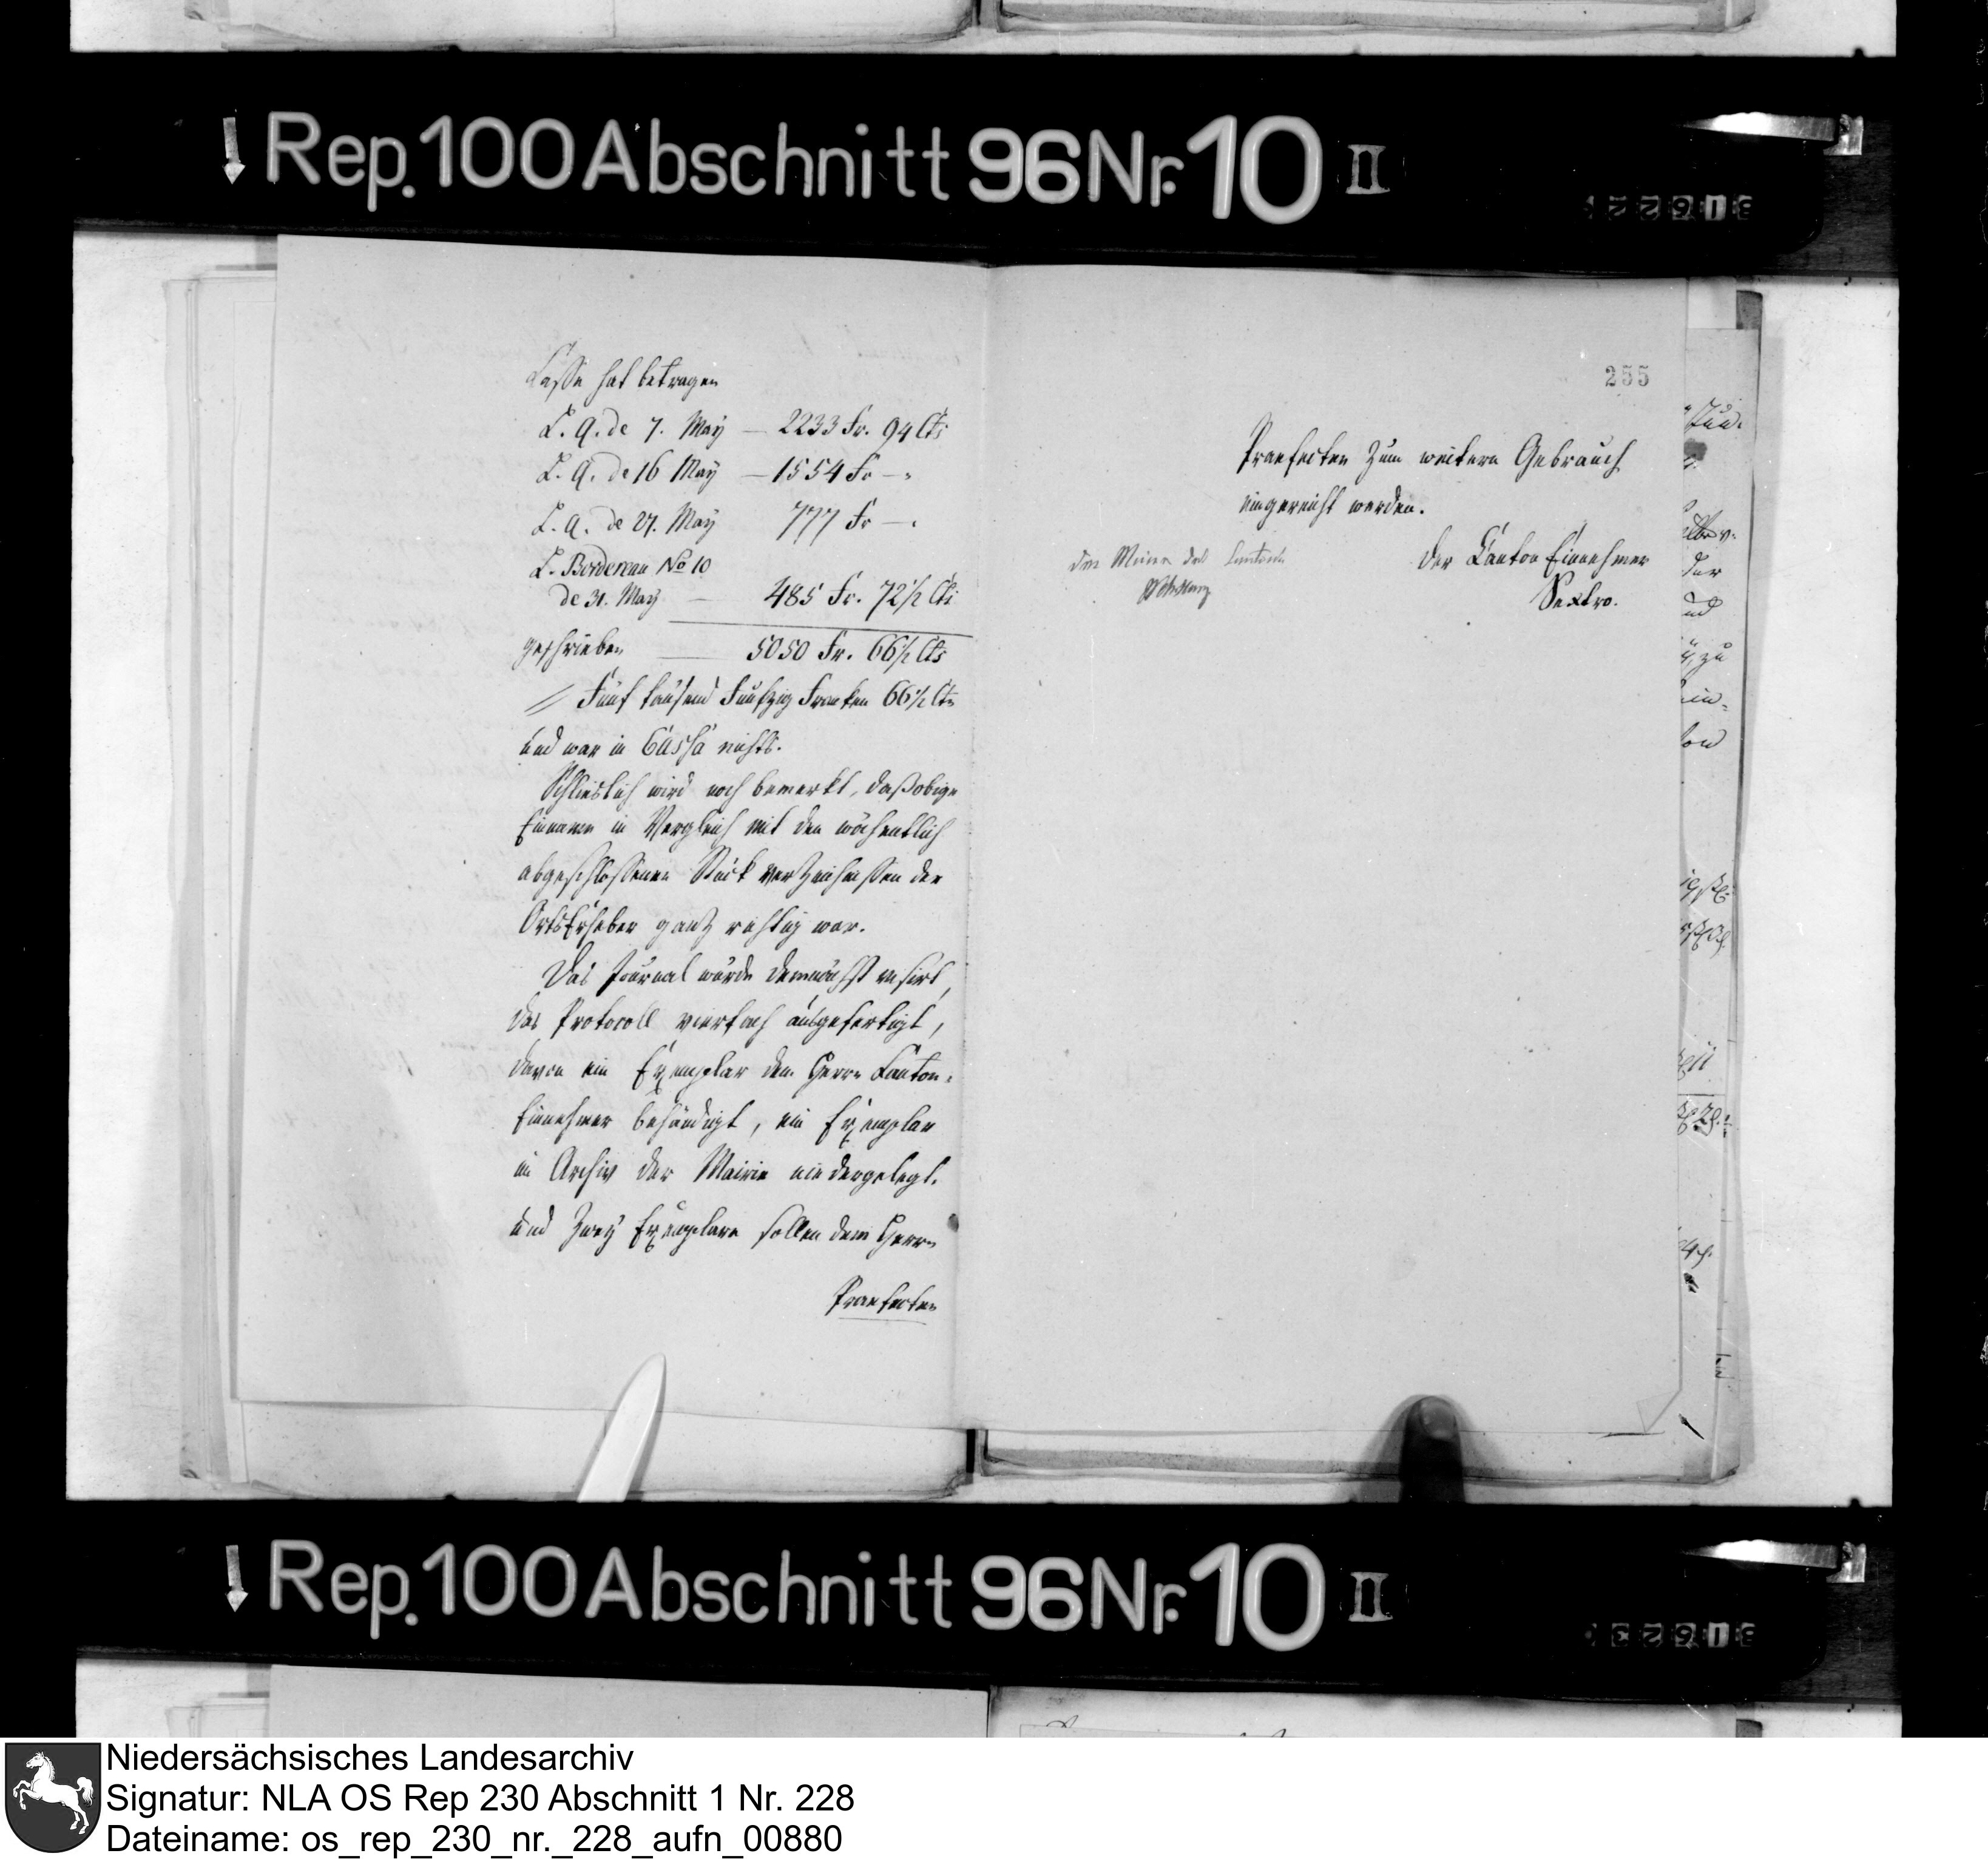 Rep. 100 Abschnitt 96 Nr. 10 II
Casse hat betragen
L. Q. de 7. May — 2233 Fr. 94 Cts
L. Q. de 16 May — 1554 Fr — "
L. Q. de 27. May 777 Fr — "
L. Bordereau No 10
de 31. May — 485 Fr. 72 1/2 Cts
geschrieben — 5050 Fr. 66 1/2 Cts
Fünf tausend Funfzig Franken 66 1/2 Cts
und war in Cassa nichts.
Schlieslich wird noch bemerkt, daß obige
Einname in Vergleich mit den wöchentlich
abgeschlossenen Stück verzeichnissen der
OrtsErheber ganz richtig war.
Das Journal würde demnächst visirt,
das Protocoll vierfach ausgefertigt,
davon ein Exemplar dem Herrn Canton-
Einnehmer behändigt, ein Exemplar
im Archiv der Mairie niedergelegt.
und zwey Exemplare sollen dem Herrn
Praefecten
255
Praefecten zum weitern Gebrauch
eingereicht werden.
Der Canton Einnehmer
Sextro.
der Maire des Cantons
Rep. 100 Abschnitt 96 Nr. 10 II
Niedersächsisches Landesarchiv
Signatur: NLA OS Rep 230 Abschnitt 1 Nr. 228
Dateiname: os_rep_230_nr._228_aufn_00880